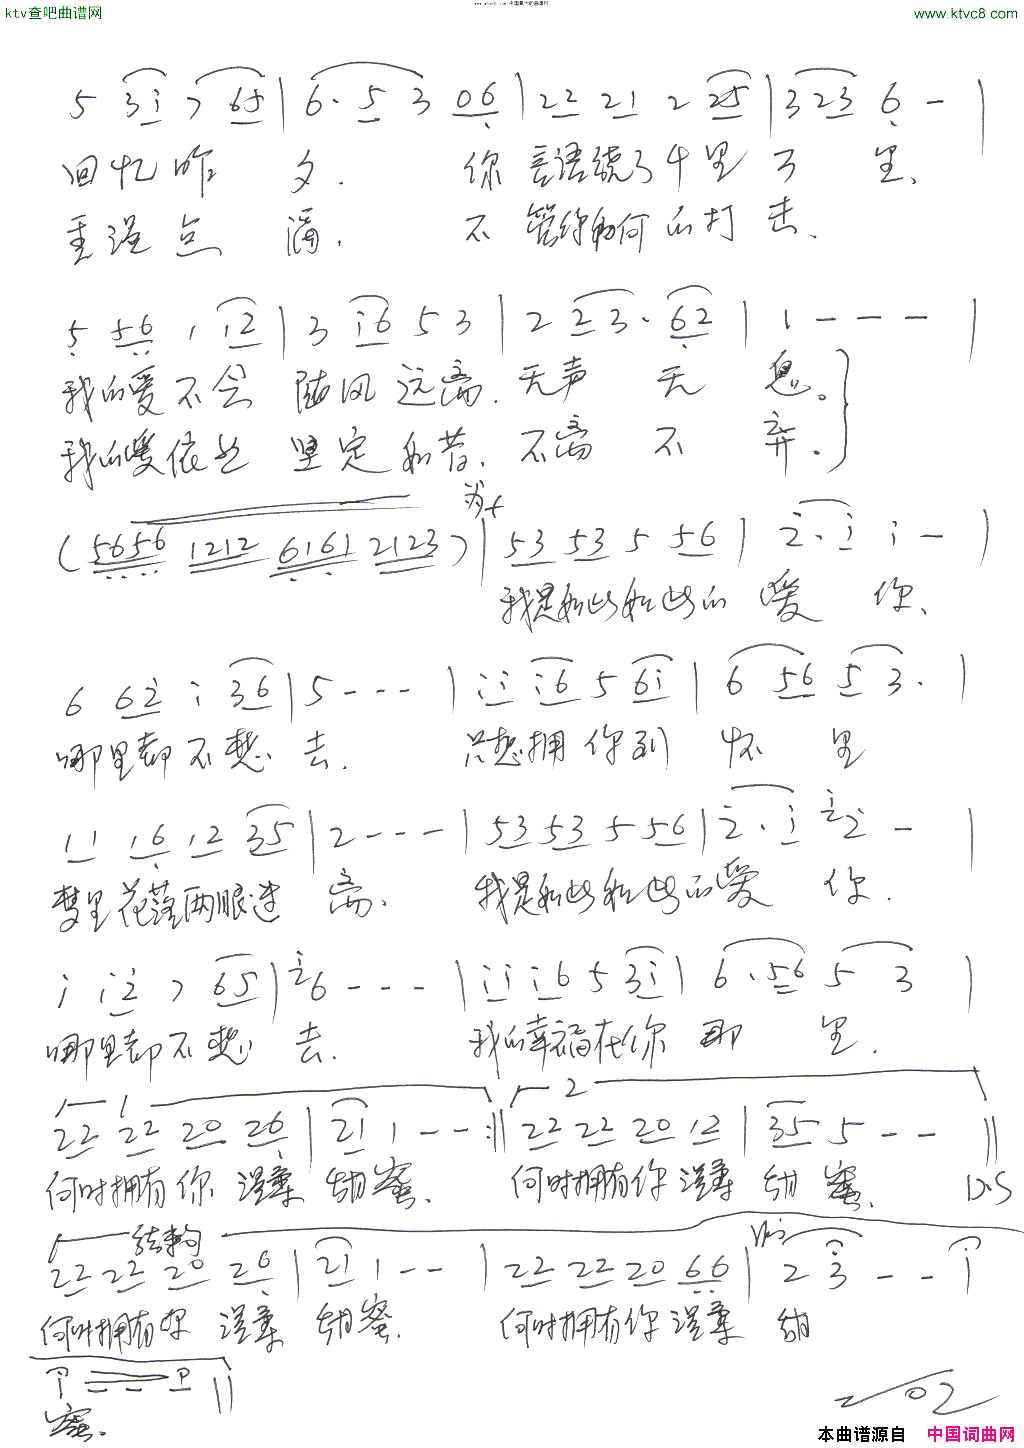 ktv查吧曲谱网
www.ktvc8.com
5 3i 7 65 | 6· 5 3 06 | 22 21 2 25 | 3 23 6 - |
回忆昨 夕. 你言语绕了千里万 里、
重温点 滴, 不管你如何的打击、
5 56 1 12 | 3 i6 5 3 | 2 2 3· 62 | 1 - - - |
我的爱不会 随风远离. 无声 无 息。
我的爱依然 坚定如昔、不离 不 弃.
(5656 1212 6161 2123) | 53 53 5 56 | 2· i i - |
我是如此如此的 爱 你、
6 62 i 36 | 5 - - - | ii i6 5 6i | 6 56 5 3· |
哪里都不想 去. 只想拥你到 怀 里
11 16 12 35 | 2 - - - | 53 53 5 56 | 2· i 2 - |
梦里花落两眼迷 离、 我是如此如此的爱 你.
i i2 7 65 | 6 - - - | ii i6 5 3i | 6· 56 5 3 |
哪里都不想 去. 我的幸福在你那 里.
1 2
22 22 20 26 | 21 1 - - :|| 22 22 20 12 | 35 5 - - ||
何时拥有你 温柔 甜蜜. 何时拥有你 温柔 甜 蜜. D.S
结束句
22 22 20 26 | 21 1 - - | 22 22 20 66 | 2 3 - - i
何时拥有你 温柔 甜蜜. 何时拥有你 温柔 甜
蜜.
本曲谱源自 中国词曲网